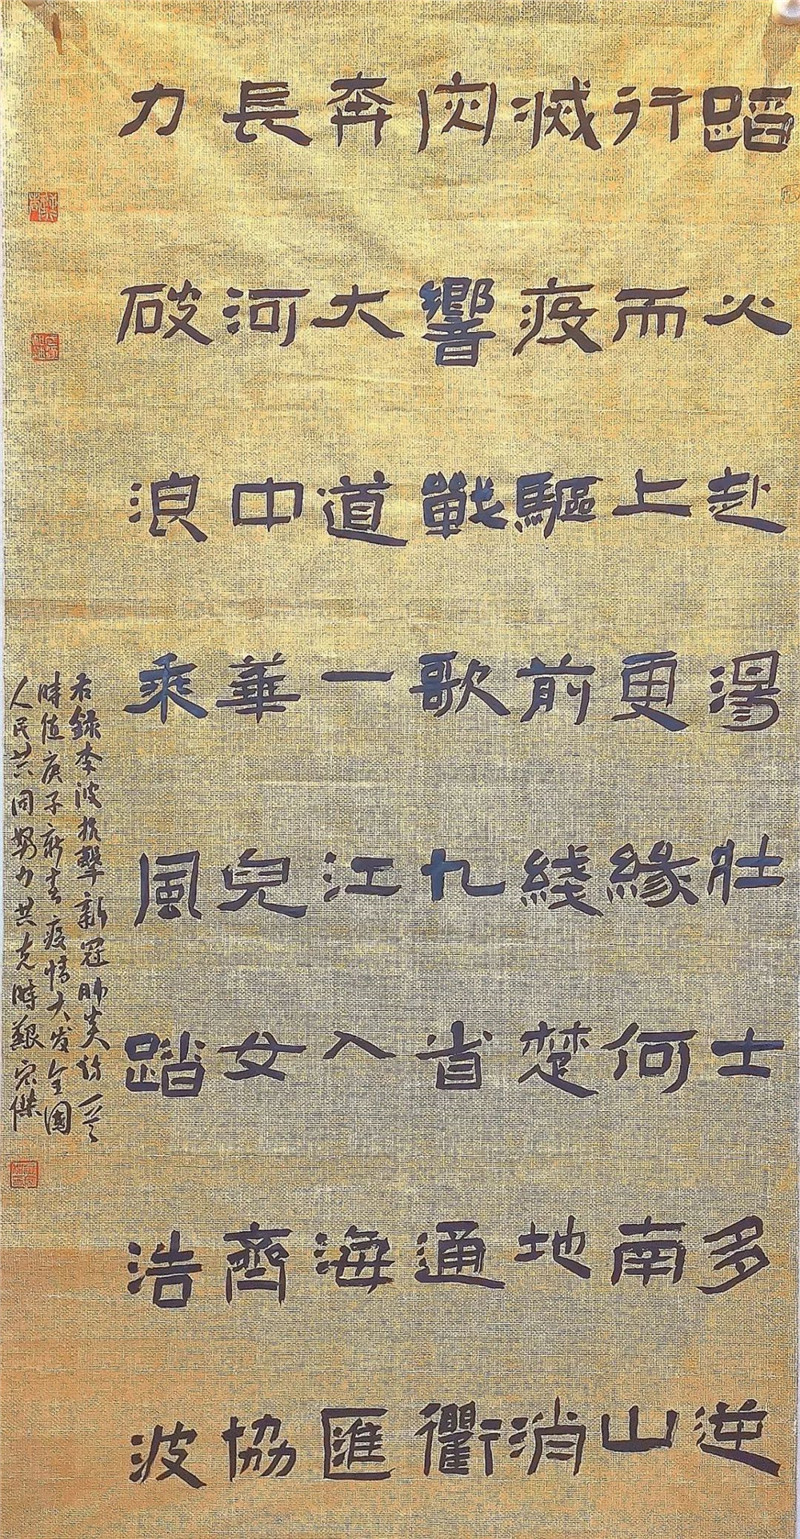 蹈火赴湯壯士多逆
行而上更緣何南山
滅疫驅前綫楚地消
災響戰歌九省通衢
奔大道一江入海匯
長河中華兒女齊協
力破浪乘風踏浩波
右録李波抗擊新冠肺炎詩一首
時值庚子新春疫情大发全國
人民共同努力共克時艱宏傑